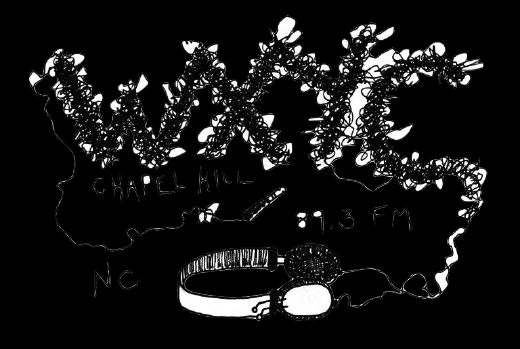 WXYC
CHAPEL HILL
89.3 FM
NC